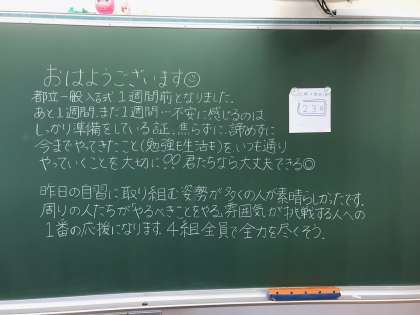 おはようございます☺
都立一般入試1週間前となりました。
あと1週間、まだ1週間…不安に感じるのは
しっかり準備をしている証。焦らずに、諦めずに
今までやってきたこと(勉強も生活も)をいつも通り
やっていくことを大切に!!君たちなら大丈夫できる☺
昨日の自習に取り組む姿勢が多くの人が素晴らしかったです。
周りの人たちがやるべきことをやる雰囲気が挑戦する人への
1番の応援になります。4組全員で全力を尽くそう。